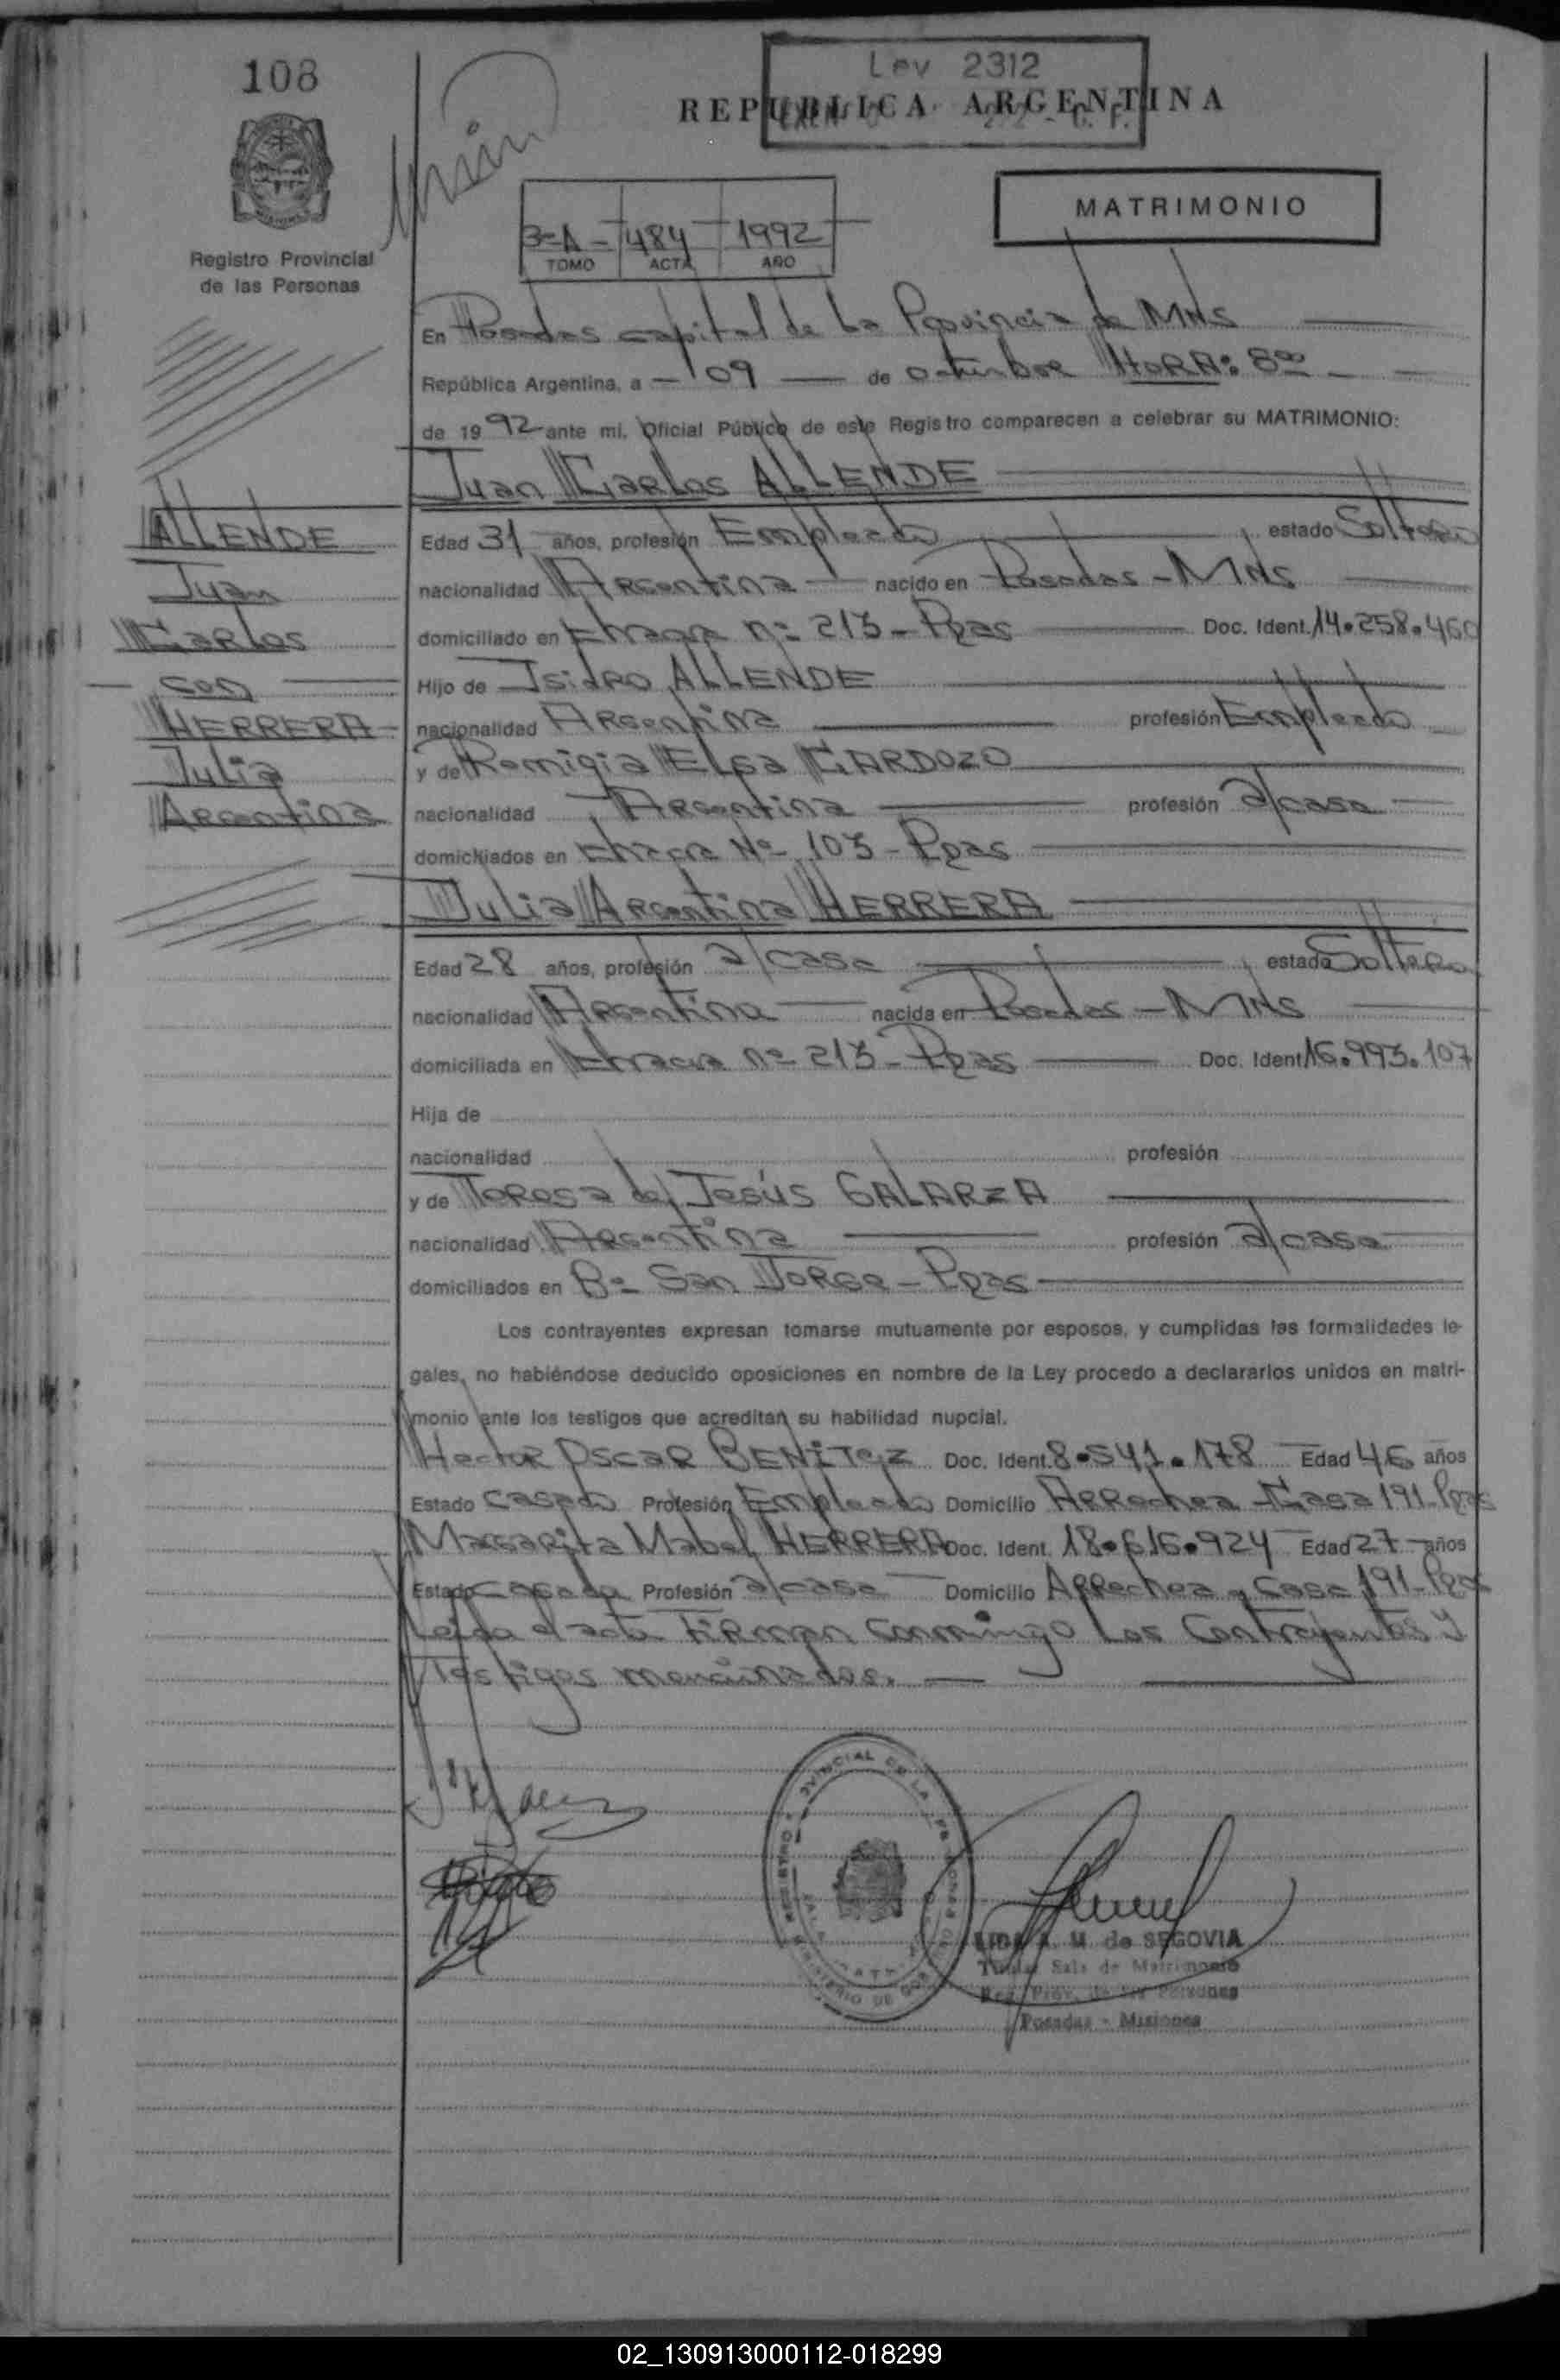 108
Ley 2312
REPUBLICA ARGENTINA
MATRIMONIO
3-A- 484 1992
TOMO ACTA AÑO
Registro Provincial
de las Personas
En Posadas capital de La Provincia de MNS
República Argentina, a - 09 - de octubre HORA: 8ºº
de 1992 ante mi, Oficial Público de este Registro comparecen a celebrar su MATRIMONIO:
Juan Carlos ALLENDE
ALLENDE
Juan
Carlos
con
HERRERA
Julia
Argentina
Edad 31 años, profesión Empleado estado Soltero
nacionalidad Argentina nacido en Posadas - MNS
domiciliado en Chacra nº 213 - Pdas Doc. Ident. 14.258.460
Hijo de Isidro ALLENDE
nacionalidad Argentina profesión Empleado
y de Remigia Elsa CARDOZO
nacionalidad Argentina profesión a/casa
domiciliados en Chacra Nº 103 - Pdas
Julia Argentina HERRERA
Edad 28 años, profesión a/casa estado Soltera
nacionalidad Argentina nacida en Posadas - MNS
domiciliada en Chacra nº 213 - Pdas Doc. Ident. 16.993.107
Hija de
nacionalidad profesión
y de Teresa de Jesús GALARZA
nacionalidad Argentina profesión a/casa
domiciliados en Bº San Jorge - Pdas
Los contrayentes expresan tomarse mutuamente por esposos, y cumplidas las formalidades le-
gales, no habiéndose deducido oposiciones en nombre de la Ley procedo a declararlos unidos en matri-
monio ante los testigos que acreditan su habilidad nupcial.
Hector Oscar BENITEZ Doc. Ident. 8.541.178 Edad 46 años
Estado Casado Profesión Empleado Domicilio Arrechea Casa 191 - Pdas
Margarita Mabel HERRERA Doc. Ident. 18.616.924 Edad 27 años
Estado Casada Profesión a/casa Domicilio Arrechea y Casa 191 - Pdas
Leída el acta Firman conmingo Los Contrayentes y
Testigos mencionados.
A. M. de SEGOVIA
Titular Sala de Matrimonio
Reg. Prov. de las Personas
Posadas - Misiones
02_130913000112-018299